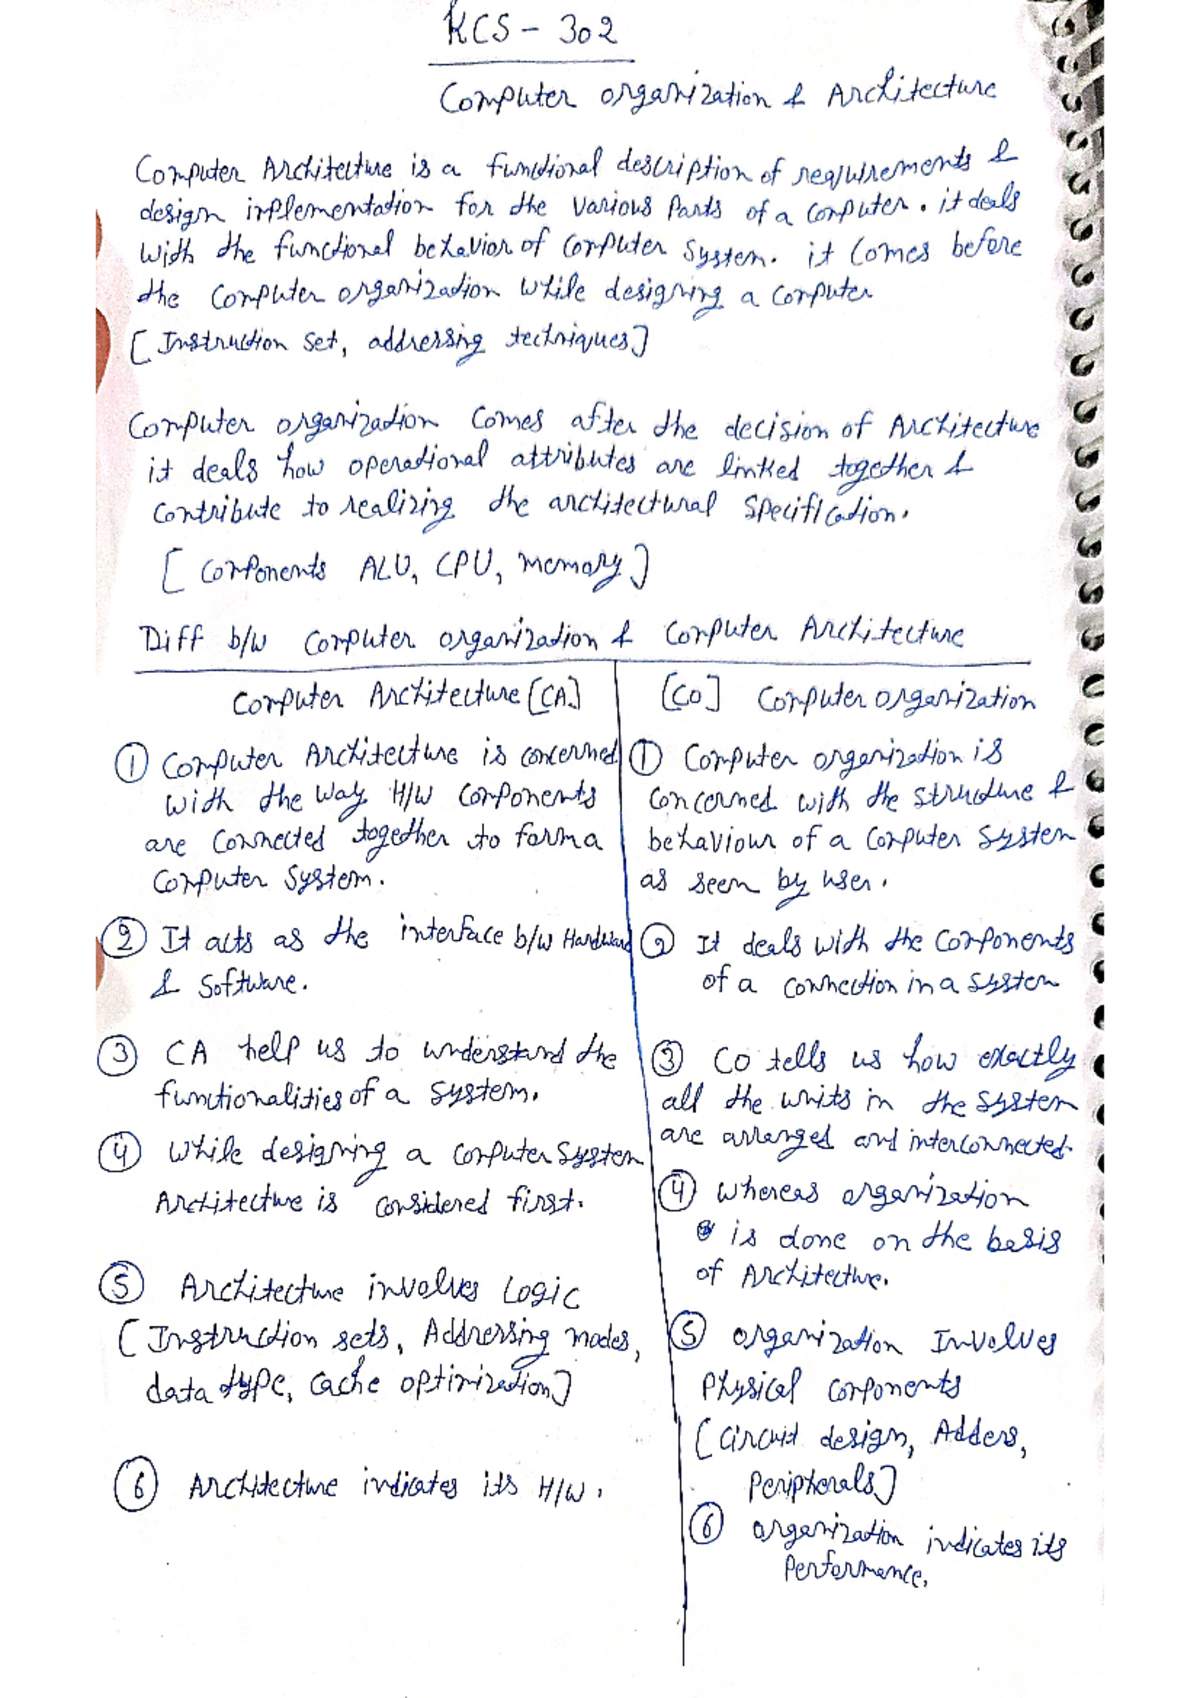 KCS - 302
Computer organization & Architecture
Computer Architecture is a functional description of requirements &
design implementation for the various parts of a computer. it deals
with the functional behavior of computer system. it comes before
the computer organization while designing a computer
[Instruction set, addressing techniques]
Computer organization comes after the decision of Architecture
it deals how operational attributes are linked together &
contribute to realizing the architectural specification.
[components ALU, CPU, memory]
Diff b/w computer organization & computer Architecture
Computer Architecture [CA]
① Computer Architecture is concerned
with the way H/W components
are connected together to form a
computer system.
② It acts as the interface b/w Hardward
& software.
③ CA help us to understand the
functionalities of a system.
④ While designing a computer system
Architecture is considered first.
⑤ Architecture involves Logic
[Instruction sets, Addressing modes,
data type, cache optimization]
⑥ Architecture indicates its H/W.
[CO] Computer organization
① Computer organization is
concerned with the structure &
behaviour of a computer system
as seen by user.
② It deals with the components
of a connection in a system
③ CO tells us how exactly
all the units in the system
are arranged and interconnected.
④ whereas organization
is done on the basis
of Architecture.
⑤ organization Involves
Physical components
[circuit design, Adders,
Peripherals]
⑥ organization indicates its
Performance.